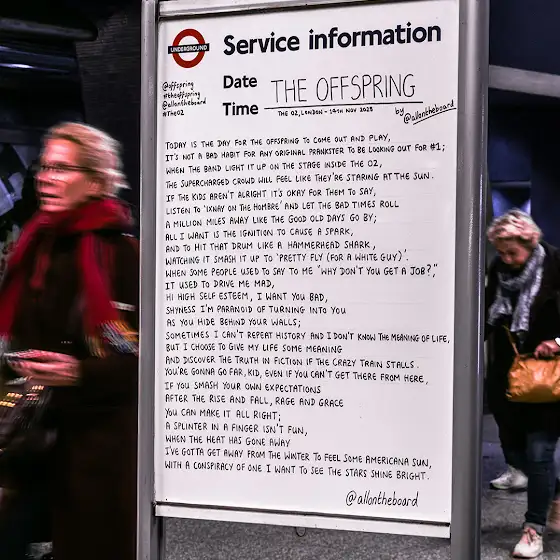 UNDERGROUND
Service information
@offspring
#theoffspring
@allontheboard
#TheO2
Date THE OFFSPRING
Time THE O2, LONDON - 19TH NOV 2025
by @allontheboard
TODAY IS THE DAY FOR THE OFFSPRING TO COME OUT AND PLAY,
IT'S NOT A BAD HABIT FOR ANY ORIGINAL PRANKSTER TO BE LOOKING OUT FOR #1;
WHEN THE BAND LIGHT IT UP ON THE STAGE INSIDE THE O2,
THE SUPERCHARGED CROWD WILL FEEL LIKE THEY'RE STARING AT THE SUN.
IF THE KIDS AREN'T ALRIGHT IT'S OKAY FOR THEM TO SAY,
LISTEN TO 'IXNAY ON THE HOMBRE' AND LET THE BAD TIMES ROLL
A MILLION MILES AWAY LIKE THE GOOD OLD DAYS GO BY;
ALL I WANT IS THE IGNITION TO CAUSE A SPARK,
AND TO HIT THAT DRUM LIKE A HAMMERHEAD SHARK,
WATCHING IT SMASH IT UP TO 'PRETTY FLY (FOR A WHITE GUY)'.
WHEN SOME PEOPLE USED TO SAY TO ME "WHY DON'T YOU GET A JOB?",
IT USED TO DRIVE ME MAD,
HI HIGH SELF ESTEEM, I WANT YOU BAD,
SHYNESS I'M PARANOID OF TURNING INTO YOU
AS YOU HIDE BEHIND YOUR WALLS;
SOMETIMES I CAN'T REPEAT HISTORY AND I DON'T KNOW THE MEANING OF LIFE,
BUT I CHOOSE TO GIVE MY LIFE SOME MEANING
AND DISCOVER THE TRUTH IN FICTION IF THE CRAZY TRAIN STALLS.
YOU'RE GONNA GO FAR, KID, EVEN IF YOU CAN'T GET THERE FROM HERE,
IF YOU SMASH YOUR OWN EXPECTATIONS
AFTER THE RISE AND FALL, RAGE AND GRACE
YOU CAN MAKE IT ALL RIGHT;
A SPLINTER IN A FINGER ISN'T FUN,
WHEN THE HEAT HAS GONE AWAY
I'VE GOTTA GET AWAY FROM THE WINTER TO FEEL SOME AMERICANA SUN,
WITH A CONSPIRACY OF ONE I WANT TO SEE THE STARS SHINE BRIGHT.
@allontheboard